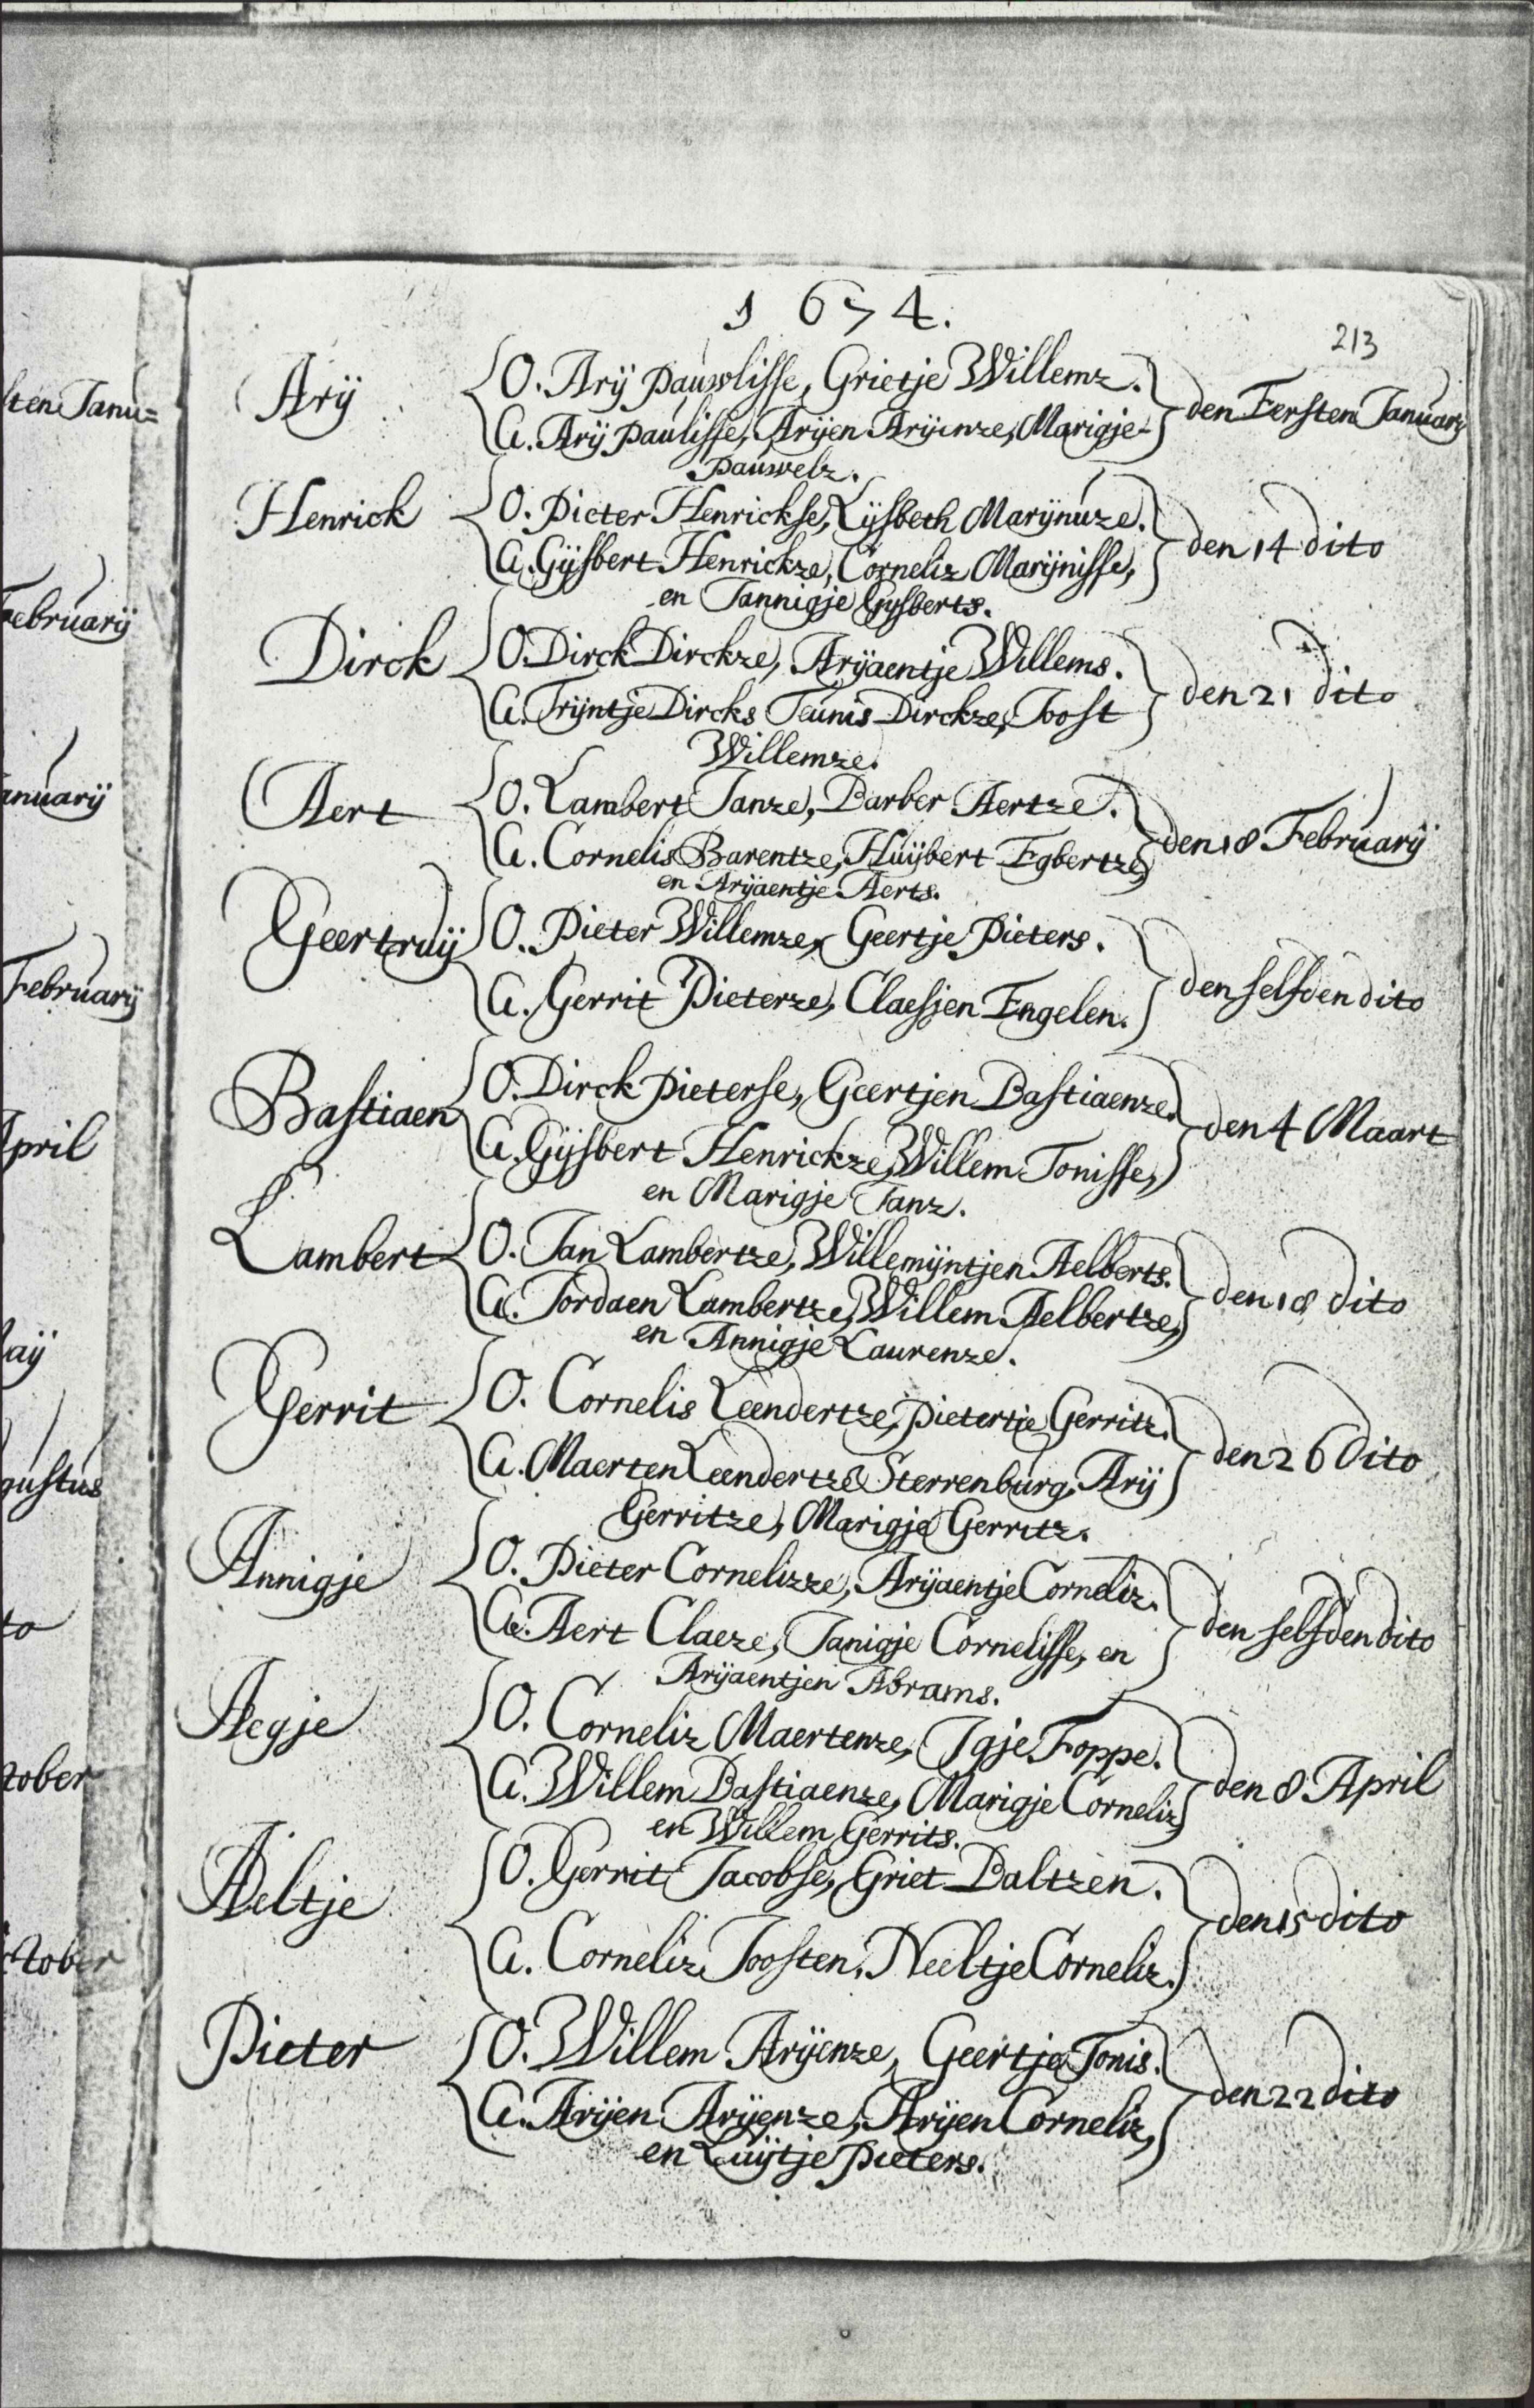 1674.
213
Arij
O. Arij Pauwlisse, Grietje Willemz.
G. Arij Paulisse, Arijen Arijenze, Marigje
Pauwelz.
den Eersten Januarij
Henrick
O. Pieter Henrickse, Lijsbeth Marijnuze.
G. Gijsbert Henrickze, Corneliz Marijnisse,
en Jannigje Gijsberts.
den 14 dito
Dirck
O. Dirck Dirckze, Arijaentje Willems.
G. Trijntje Dircks Teunis Dirckze, Joost
Willemze.
den 21 dito
Aert
O. Lambert Janze, Barber Aertze.
G. Cornelis Barentze, Huijbert Egbertze,
en Arijaentje Aerts.
den 18 Februarij
Geertruij
O. Pieter Willemze, Geertje Pieters.
G. Gerrit Pieterze, Claesjen Engelen.
den selfden dito
Bastiaen
O. Dirck Pieterse, Geertjen Bastiaenze.
G. Gijsbert Henrickze, Willem Tonisse,
en Marigje Janz.
den 4 Maart
Lambert
O. Jan Lambertze, Willemijntjen Aelberts.
G. Jordaen Lambertze, Willem Aelbertze,
en Annigje Laurenze.
den 18 dito
Gerrit
O. Cornelis Leendertze, Pietertje Gerritz.
G. Maerten Leendertze Sterrenburg, Arij
Gerritze, Marigje Gerritz.
den 26 dito
Annigje
O. Pieter Cornelizze, Arijaentje Corneliz.
G. Aert Claeze, Janigje Cornelisse, en
Arijaentjen Abrams.
den selfden dito
Aegje
O. Corneliz Maertenze, Jgje Foppe.
G. Willem Bastiaenze, Marigje Corneliz,
en Willem Gerrits.
den 8 April
Aeltje
O. Gerrit Jacobse, Griet Baltzen.
G. Corneliz Joosten, Neeltje Corneliz.
den 15 dito
Pieter
O. Willem Arijenze, Geertje Tonis.
G. Arijen Arijenze, Arijen Corneliz,
en Luijtje Pieters.
den 22 dito